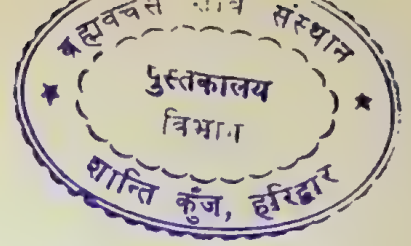 ब्रह्मवर्चस संस्थान
पुस्तकालय
विभाग
शान्ति कुँज, हरिद्वार